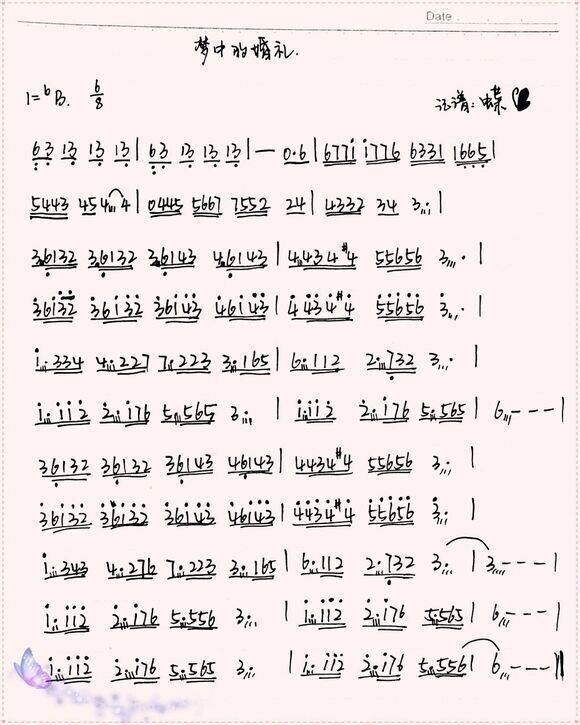 Date
梦中的婚礼.
1=ᵇB. 6/8 记谱:蝶
63 13 13 13 | 63 13 13 13 | — 0·6 | 6771 1776 6331 1665 |
5443 454 4 | 0445 5667 7552 24 | 4332 34 3 |
36132 36132 36143 46143 | 4434#4 55656 3 · |
36132 36132 36143 46143 | 4434#4 55656 3 · |
1·334 4·227 7·223 3·165 | 6·112 2·732 3 · |
1·112 2·176 5·565 3· | 1·112 2·176 5·565 | 6 - - - |
36132 36132 36143 46143 | 4434#4 55656 3· |
36132 36132 36143 46143 | 4434#4 55656 3· |
1·343 4·276 7·223 3·165 | 6·112 2·732 3· | 3 - - - |
1·112 2·176 5·556 3· | 1·112 2·176 5·565 | 6 - - - |
1·112 2·176 5·565 3· | 1·112 2·176 5·556 | 6 - - - ||